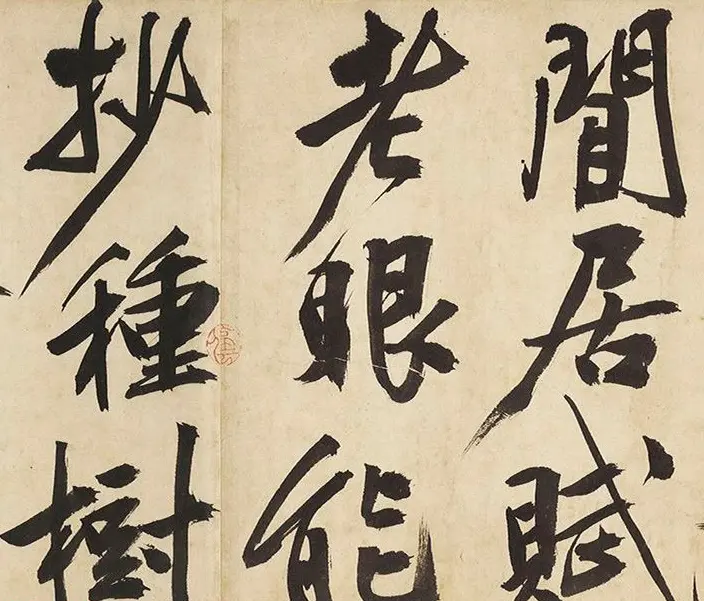 閒居賦
老眼能
抄種樹